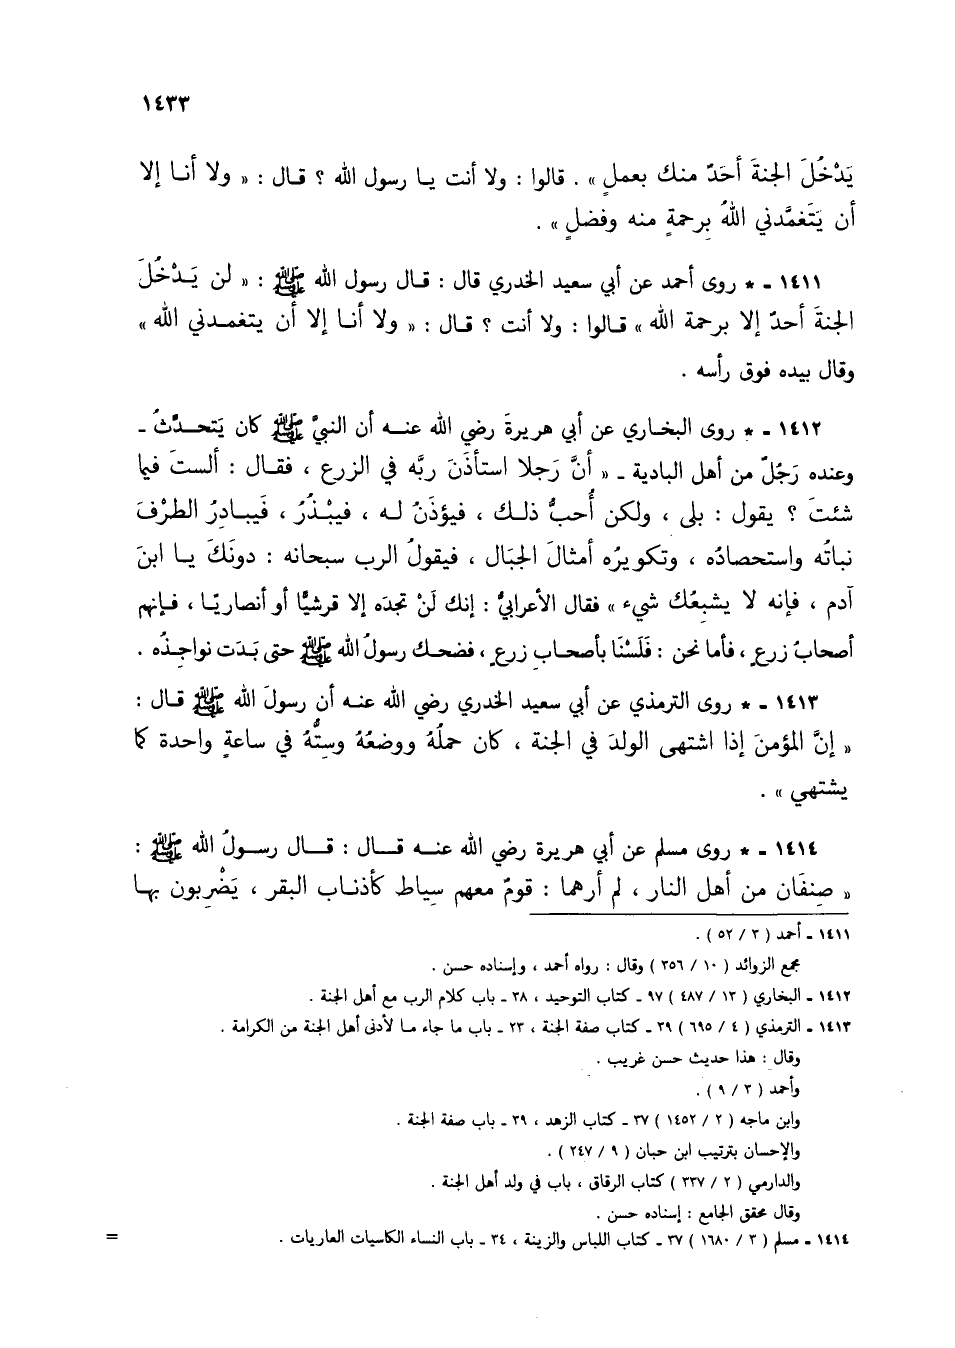 ١٤٣٣
يَدْخُلَ الجنةَ أحَدٌ منك بعملٍ » . قالوا : ولا أنت يـا رسول الله ؟ قـال : « ولا أنـا إلا
أن يَتَغمَّدني اللهُ برحمةٍ منه وفضلٍ » .
١٤١١ - * روى أحمد عن أبي سعيد الخدري قال : قـال رسول الله ﷺ : « لن يَـدْخُلَ
الجنةَ أحدٌ إلا برحمة الله » قـالوا : ولا أنت ؟ قـال : « ولا أنـا إلا أن يتغمـدني الله »
وقال بيده فوق رأسه .
١٤١٢ - * روى البخـاري عن أبي هريرةَ رضي الله عنـه أن النبيَّ ﷺ كان يَتحـدَّثُ -
وعنده رَجُلٌ من أهل البادية - « أنَّ رَجلا استأذَنَ ربَّه في الزرع ، فقـال : ألستَ فيما
شئتَ ؟ يقول : بلى ، ولكن أُحبُّ ذلـك ، فيؤذَنُ لـه ، فيبْـذُرُ ، فَيبـادِرُ الطرْفَ
نباتُه واستحصادُه ، وتكويرُه أمثالَ الجبَال ، فيقولُ الرب سبحانه : دونَكَ يـا ابنَ
آدم ، فإنه لا يشبِعُك شيء » فقال الأعرابيُّ : إنك لَنْ تجدَه إلا قرشيًّا أو أنصاريًـا ، فـإنهم
أصحابُ زرعٍ ، فأما نحن : فَلَسْنَا بأصحـابِ زرعٍ ، فضحـك رسولُ الله ﷺ حتى بَدَت نواجـذُه .
١٤١٣ - * روى الترمذي عن أبي سعيد الخدري رضي الله عنـه أن رسولَ الله ﷺ قـال :
« إنَّ المؤمنَ إذا اشتهى الولدَ في الجنة ، كان حملُهُ ووضعُهُ وسنُّهُ في ساعةٍ واحدة كما
يشتهي » .
١٤١٤ - * روى مسلم عن أبي هريرة رضي الله عنـه قـال : قـال رسـولُ الله ﷺ :
« صِنفَان من أهل النار ، لم أرهما : قومٌ معهم سِياط كأذنـاب البقر ، يَضْرِبون بهـا
١٤١١ - أحمد ( ٣ / ٥٢ ) .
مجمع الزوائد ( ١٠ / ٣٥٦ ) وقال : رواه أحمد ، وإسناده حسن .
١٤١٢ - البخاري ( ١٣ / ٤٨٧ ) ٩٧ - كتاب التوحيد ، ٣٨ - باب كلام الرب مع أهل الجنة .
١٤١٣ - الترمذي ( ٤ / ٦٩٥ ) ٣٩ - كتاب صفة الجنة ، ٢٣ - باب ما جاء مـا لأدنى أهل الجنة من الكرامة .
وقال : هذا حديث حسن غريب .
وأحمد ( ٣ / ٩ ) .
وابن ماجه ( ٢ / ١٤٥٢ ) ٣٧ - كتاب الزهد ، ٣٩ - باب صفة الجنة .
والإحسان بترتيب ابن حبان ( ٩ / ٢٤٧ ) .
والدارمي ( ٢ / ٣٣٧ ) كتاب الرقاق ، باب في ولد أهل الجنة .
وقال محقق الجامع : إسناده حسن .
١٤١٤ - مسلم ( ٣ / ١٦٨٠ ) ٣٧ - كتاب اللباس والزينة ، ٣٤ - باب النساء الكاسيات العاريات . =